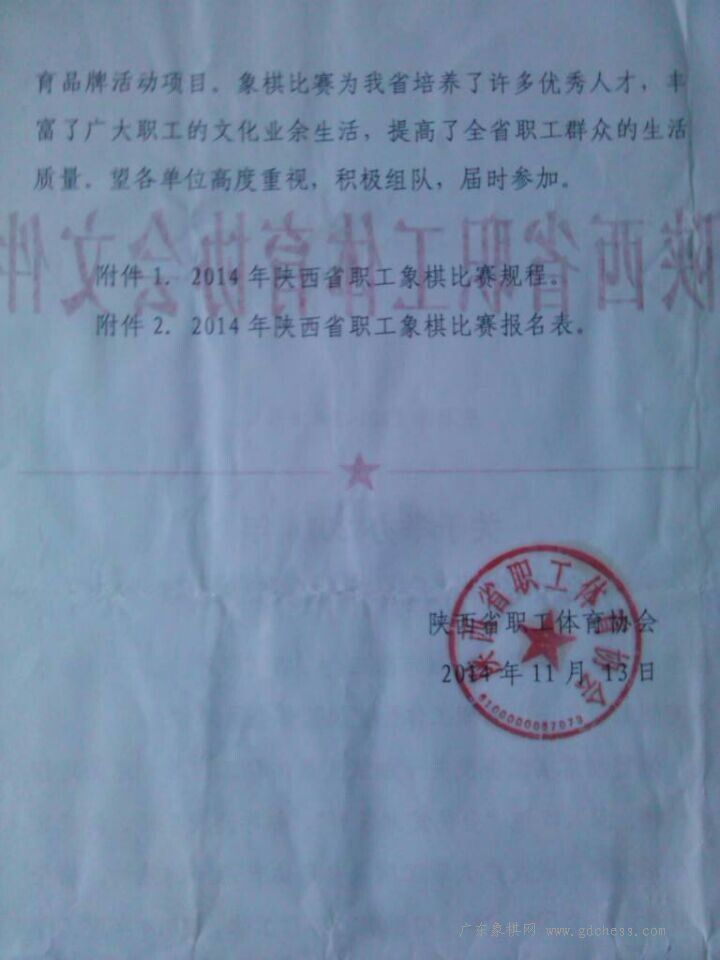 育品牌活动项目。象棋比赛为我省培养了许多优秀人才，丰
富了广大职工的文化业余生活，提高了全省职工群众的生活
质量。望各单位高度重视，积极组队，届时参加。
陕西省职工体育协会文件
附件 1. 2014 年陕西省职工象棋比赛规程。
附件 2. 2014 年陕西省职工象棋比赛报名表。
陕西省职工体育协会
陕西省职工体育协会
2014 年 11 月 13 日
广东象棋网 www.gdchess.com